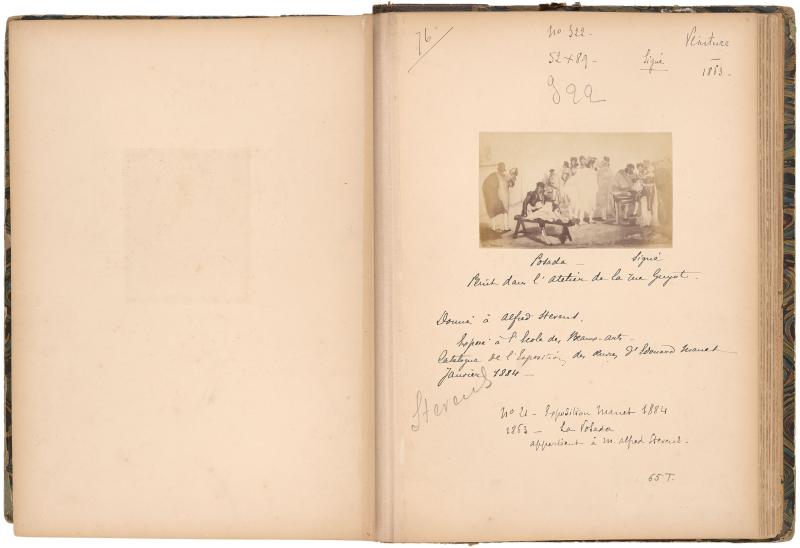 76
No 322 -
Peinture
52 x 89 -
Signé
1863 -
Posada - Signé
Peint dans l'atelier de la rue Guyot.
Donné à Alfred Stevens.
Exposé à l'Ecole des Beaux-arts -
Catalogue de l'Exposition des œuvres d'Edouard Manet
Janvier 1884 -
Stevens
No 21 - Exposition Manet 1884
1863 - La Posada
appartient à M. Alfred Stevens -
65 T.